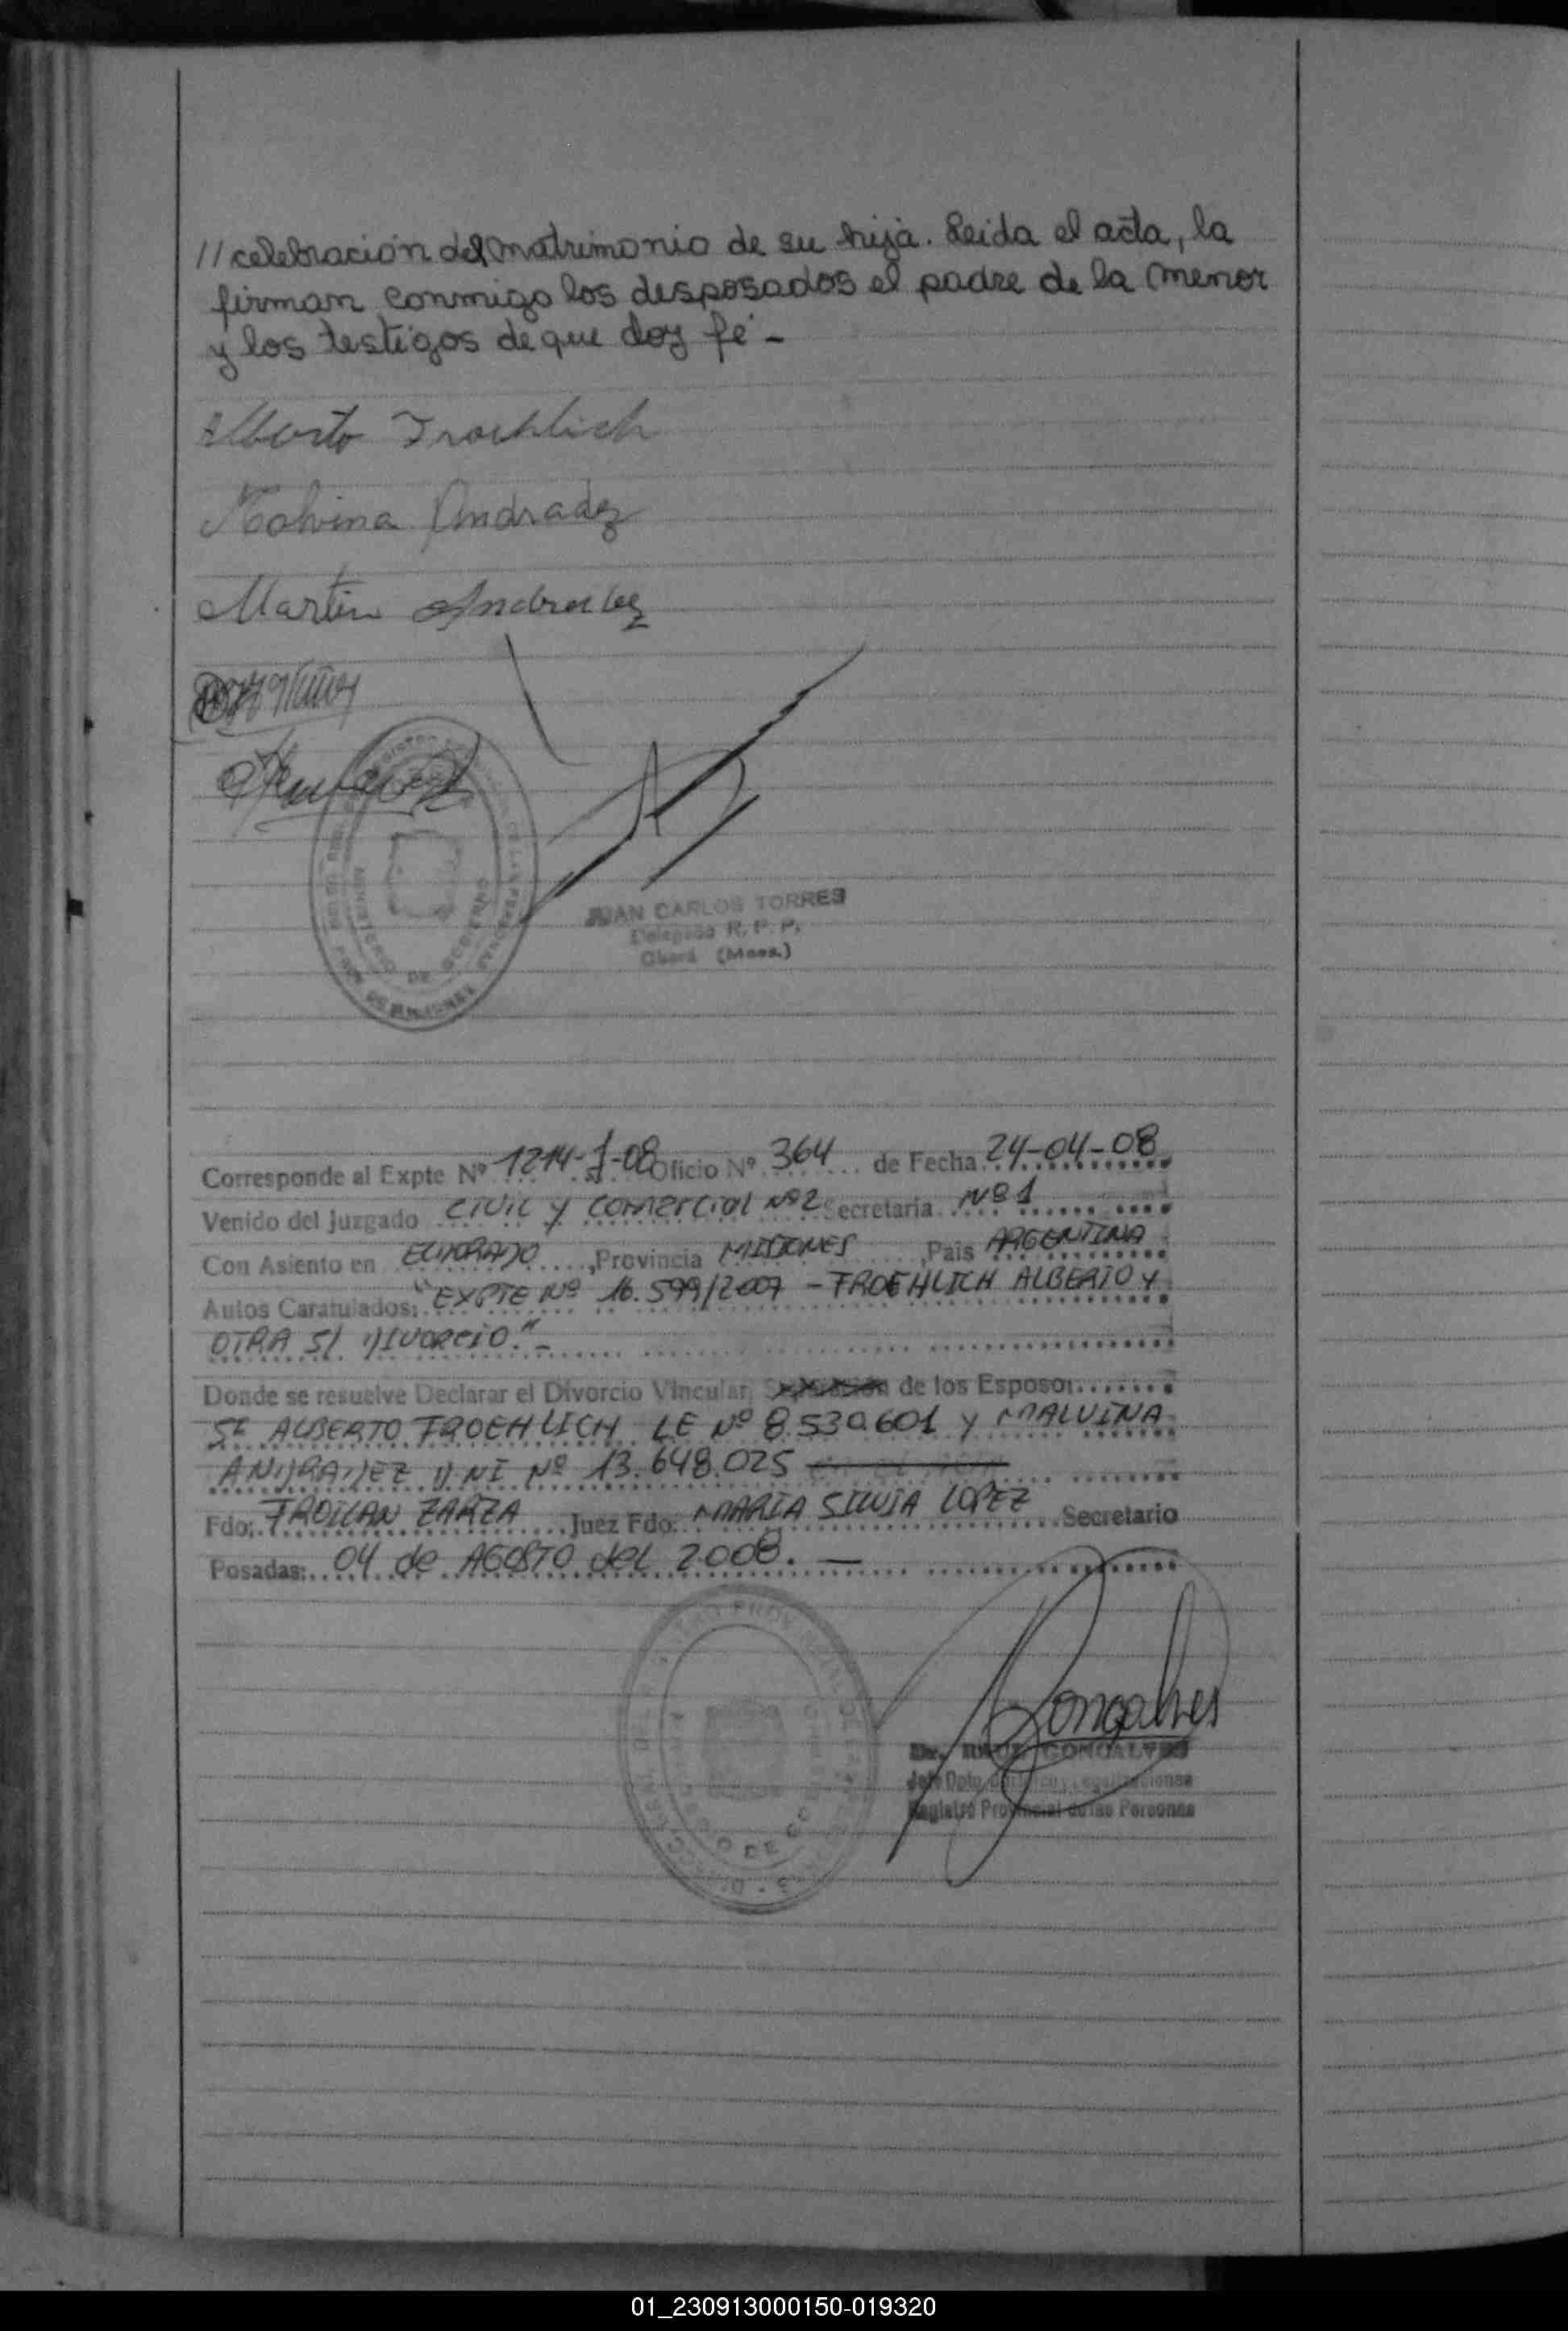 // celebración del matrimonio de su hija. Leida el acta, la
firman conmigo los desposados el padre de la menor
y los testigos de que doy fé -
Alberto Froehlich
Malvina Andradez
Martin Andradez
JUAN CARLOS TORRES
Delegado R. P. P.
Oberá (Mnes.)
MINISTERIO DE GOBIERNO
Corresponde al Expte Nº 1214-J-08 Oficio Nº 364 de Fecha 24-04-08
Venido del juzgado CIVIL Y COMERCIAL Nº2 Secretaria Nº 1
Con Asiento en ELDORADO, Provincia MISIONES, Pais ARGENTINA
Autos Caratulados: "EXPTE Nº 16.599/2007 - FROEHLICH ALBERTO Y
OTRA S/ DIVORCIO." -
Donde se resuelve Declarar el Divorcio Vincular, de los Esposos
Sr ALBERTO FROEHLICH LE Nº 8.530.601 y MALVINA
ANDRADEZ DNI Nº 13.648.025
Fdo: FROILAN ZARZA Juez Fdo: MARIA SILVIA LOPEZ Secretario
Posadas: 04 de AGOSTO del 2008. —
Gonçalves
Dr. RAUL GONCALVES
Jefe Dpto. Jurídico y Legalizaciones
Registro Provincial de las Personas
01_230913000150-019320